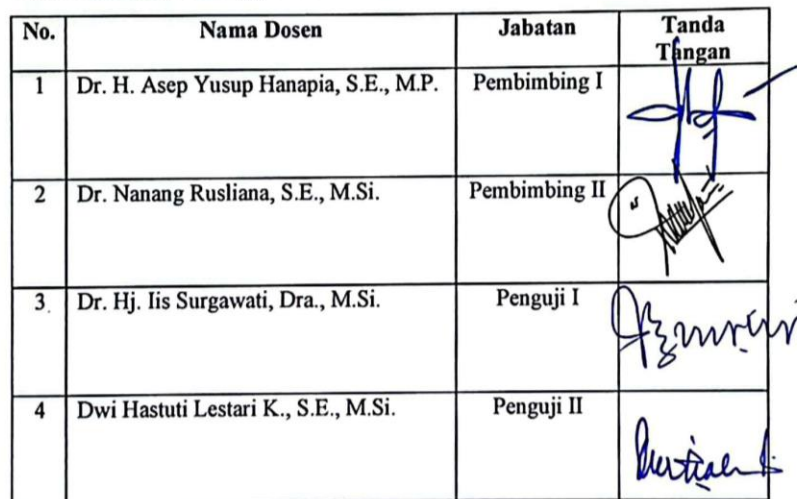 No. Nama Dosen Jabatan Tanda Tangan
1 Dr. H. Asep Yusup Hanapia, S.E., M.P. Pembimbing I
2 Dr. Nanang Rusliana, S.E., M.Si. Pembimbing II
3. Dr. Hj. Iis Surgawati, Dra., M.Si. Penguji I
4 Dwi Hastuti Lestari K., S.E., M.Si. Penguji II